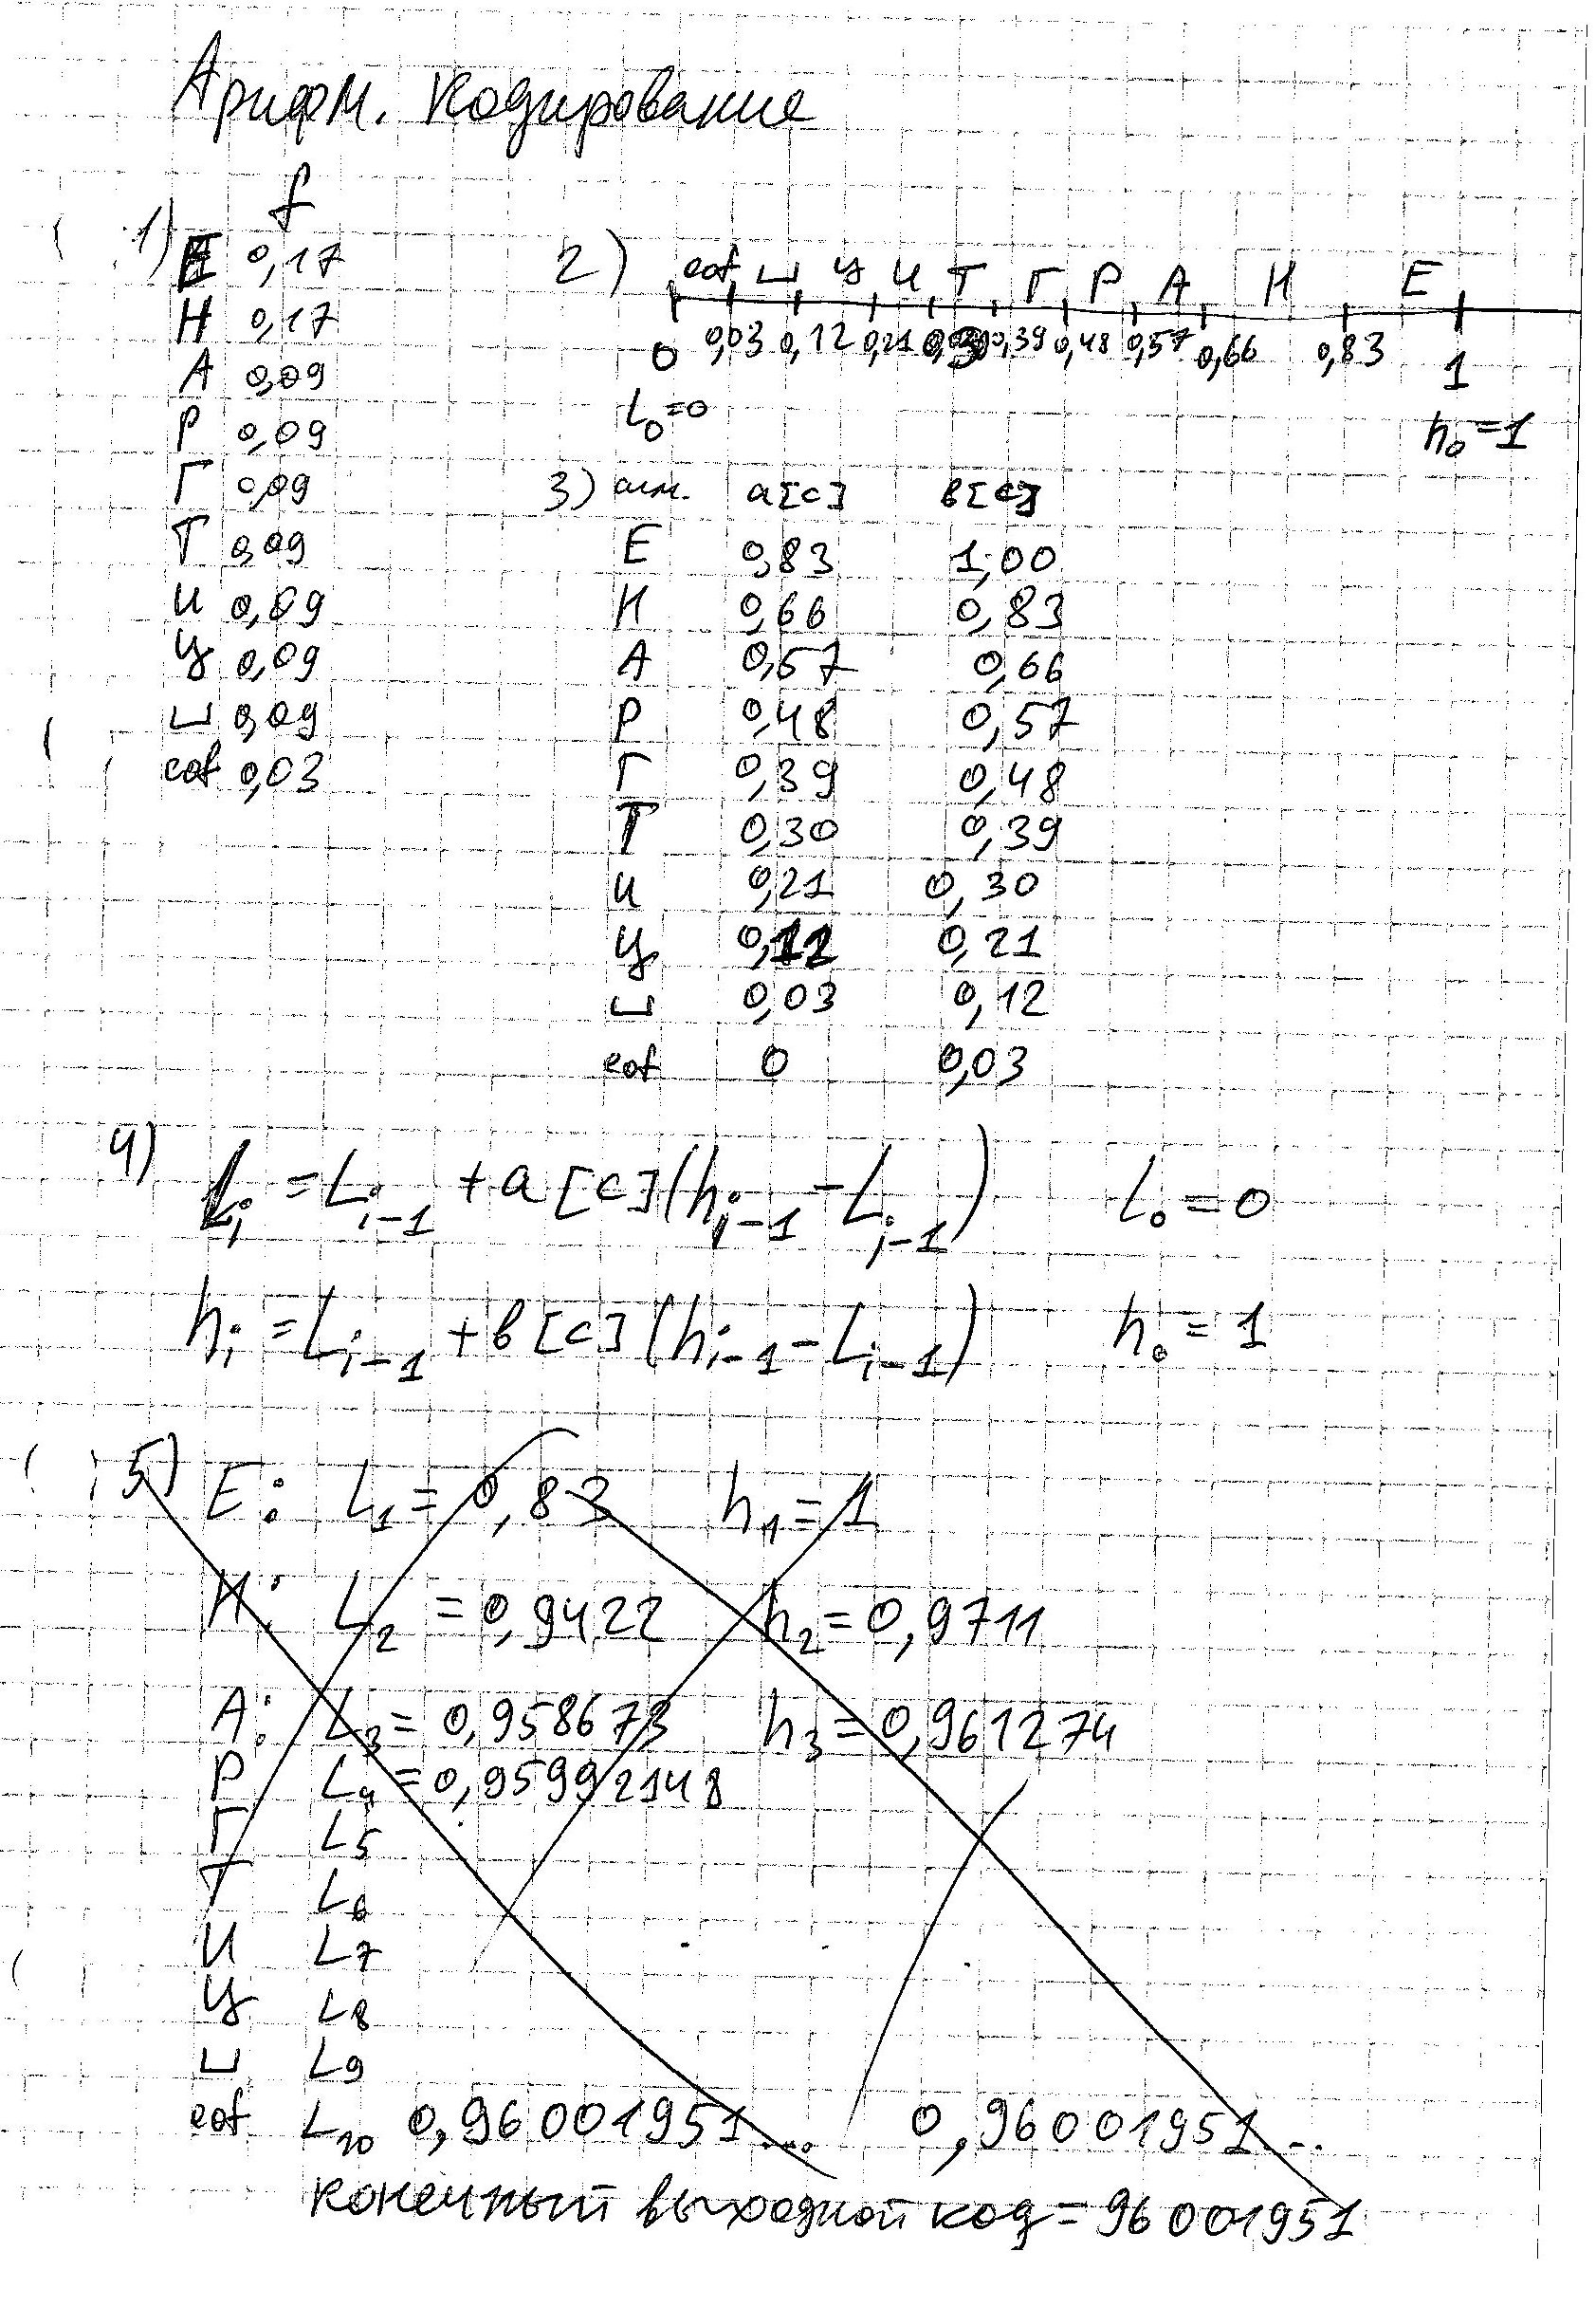 Арифм. Кодирование
f
1) E 0,17
Н 0,17
А 0,09
Р 0,09
Г 0,09
Т 0,09
И 0,09
У 0,09
⊔ 0,09
eof 0,03
2) eof ⊔ У И Т Г Р А Н Е
0 0,03 0,12 0,21 0,30 0,39 0,48 0,57 0,66 0,83 1
L₀=0 h₀=1
3) a[c] в[c]
Е 0,83 1,00
Н 0,66 0,83
А 0,57 0,66
Р 0,48 0,57
Г 0,39 0,48
Т 0,30 0,39
И 0,21 0,30
У 0,12 0,21
⊔ 0,03 0,12
eof 0 0,03
4) Lᵢ = Lᵢ₋₁ + a[c](hᵢ₋₁ - Lᵢ₋₁) L₀ = 0
hᵢ = Lᵢ₋₁ + в[c](hᵢ₋₁ - Lᵢ₋₁) h₀ = 1
5) Е: L₁ = 0,83 h₁ = 1
Н: L₂ = 0,9422 h₂ = 0,9711
А: L₃ = 0,958673 h₃ = 0,961274
Р L₄ = 0,95992148
Г L₅
Т L₆
И L₇
У L₈
⊔ L₉
eof L₁₀ 0,96001951... 0,96001951...
конечный выходной код = 96001951